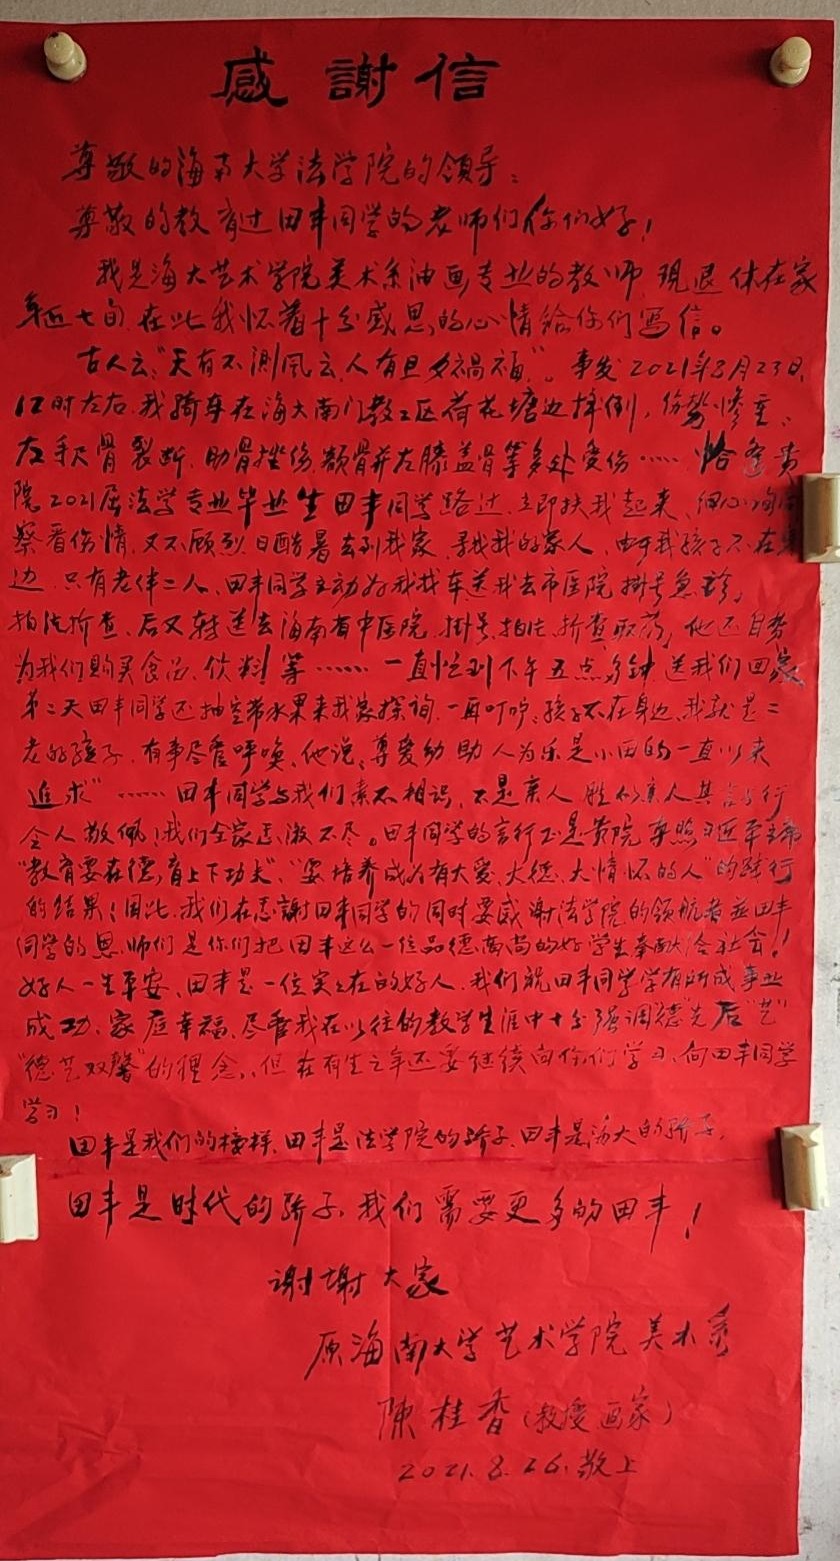 感謝信
尊敬的海南大学法学院的领导：
尊敬的教育过田丰同学的老师们你们好！
我是海大艺术学院美术系油画专业的教师，现退休在家
年近七旬，在此我怀着十分感恩的心情给你们写信。
古人云：“天有不测风云，人有旦夕祸福”。事发2021年8月23日，
12时左右，我骑车在海大南门教工区荷花塘边摔倒，伤势惨重、
左手尺骨裂断，肋骨挫伤，额骨并左膝盖骨等多处受伤……恰逢贵
院2021届法学专业毕业生田丰同学路过，立即扶我起来，细心询问
察看伤情，又不顾烈日酷暑去到我家，寻找我的家人，由于我孩子不在身
边，只有老伴二人，田丰同学主动为我找车送我去市医院掛号急诊，
拍片折查，后又转送去海南省中医院，掛号，拍片，折查取药，他还自费
为我们购买食品、饮料等……一直忙到下午五点多钟送我们回家
第二天田丰同学还抽空带水果来我家探询，一再叮咛：孩子不在身边，我就是二
老的孩子，有事尽管呼唤，他说：尊爱幼助人为乐是小田的一直以来
追求”……田丰同学与我们素不相识，不是亲人胜似亲人其言与行
令人敬佩！我们全家感激不尽。田丰同学的言行正是贵院遵照习近平主席
“教育要在德育上下功夫”、“要培养成为有大爱、大德、大情怀的人”的践行
的结果！因此，我们在感謝田丰同学的同时要感谢法学院的领航者並田丰
同学的恩师们是你们把田丰这么一位品德高尚的好学生奉献给社会！
好人一生平安，田丰是一位实实在在的好人，我们祝田丰同学学有所成事业
成功，家庭幸福，尽管我在以往的教学生涯中十分强调“德”先后“艺”
“德艺双馨”的理念，但在有生之年还要继续向你们学习，向田丰同学
学习！
田丰是我们的榜样，田丰是法学院的骄子，田丰是海大的骄子，
田丰是时代的骄子，我们需要更多的田丰！
谢谢大家
原海南大学艺术学院美术系
陳桂香（教授画家）
2021.8.26.敬上